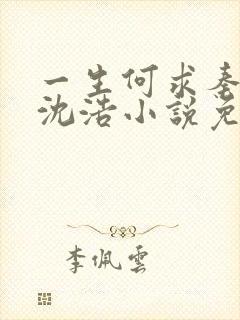 一生何求秦
沈浩小說免
李佩雲